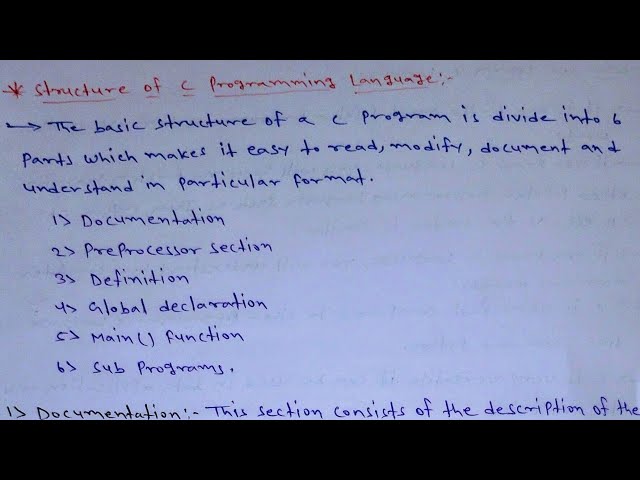 * Structure of C Programming Language:-
→ The basic structure of a C Program is divide into 6
Parts which makes it easy to read, modify, document and
understand in particular format.
1> Documentation
2> PreProcessor section
3> Definition
4> Global declaration
5> Main() function
6> Sub Programs.
1> Documentation:- This section consists of the description of the